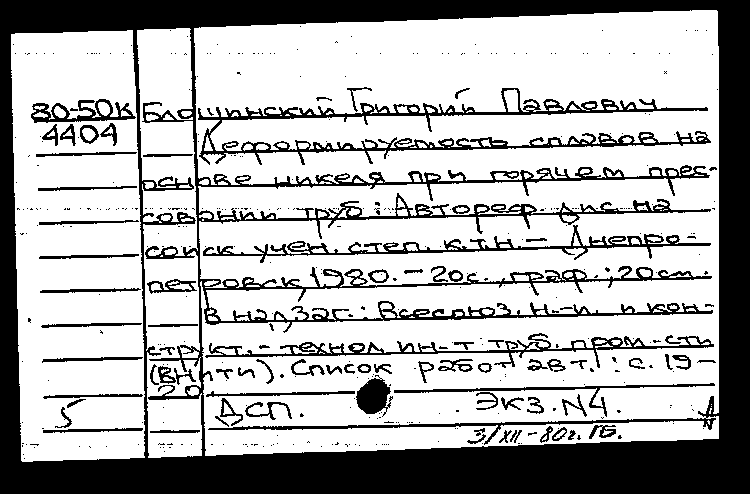 80-50К Блошинский, Григорий Павлович
4404 Деформируемость сплавов на
основе никеля при горячем прес-
совании труб: Автореф. дис. на
соиск. учен. степ. к.т.н. – Днепро-
петровск, 1980. – 20с., граф.; 20см.
В надзаг.: Всесоюз. н.-и. и кон-
структ.-технол. ин-т труб. пром-сти
(ВНИТИ). Список работ авт.: с. 19-
20
5 ДСП. Экз. N4.
3/XII-80г.